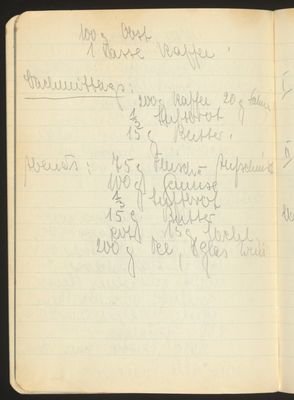 100 g Obst
1 Tasse Kaffee.
Nachmittags:
200 g Kaffee 20 g Sahne
1/3 Luftbrot
15 g Butter.
Abends: 75 g Fleisch Aufschnitt
100 g Gemüse
1/3 Luftbrot
15 g Butter
15 g
200 g Tee, 1 Glas Wein